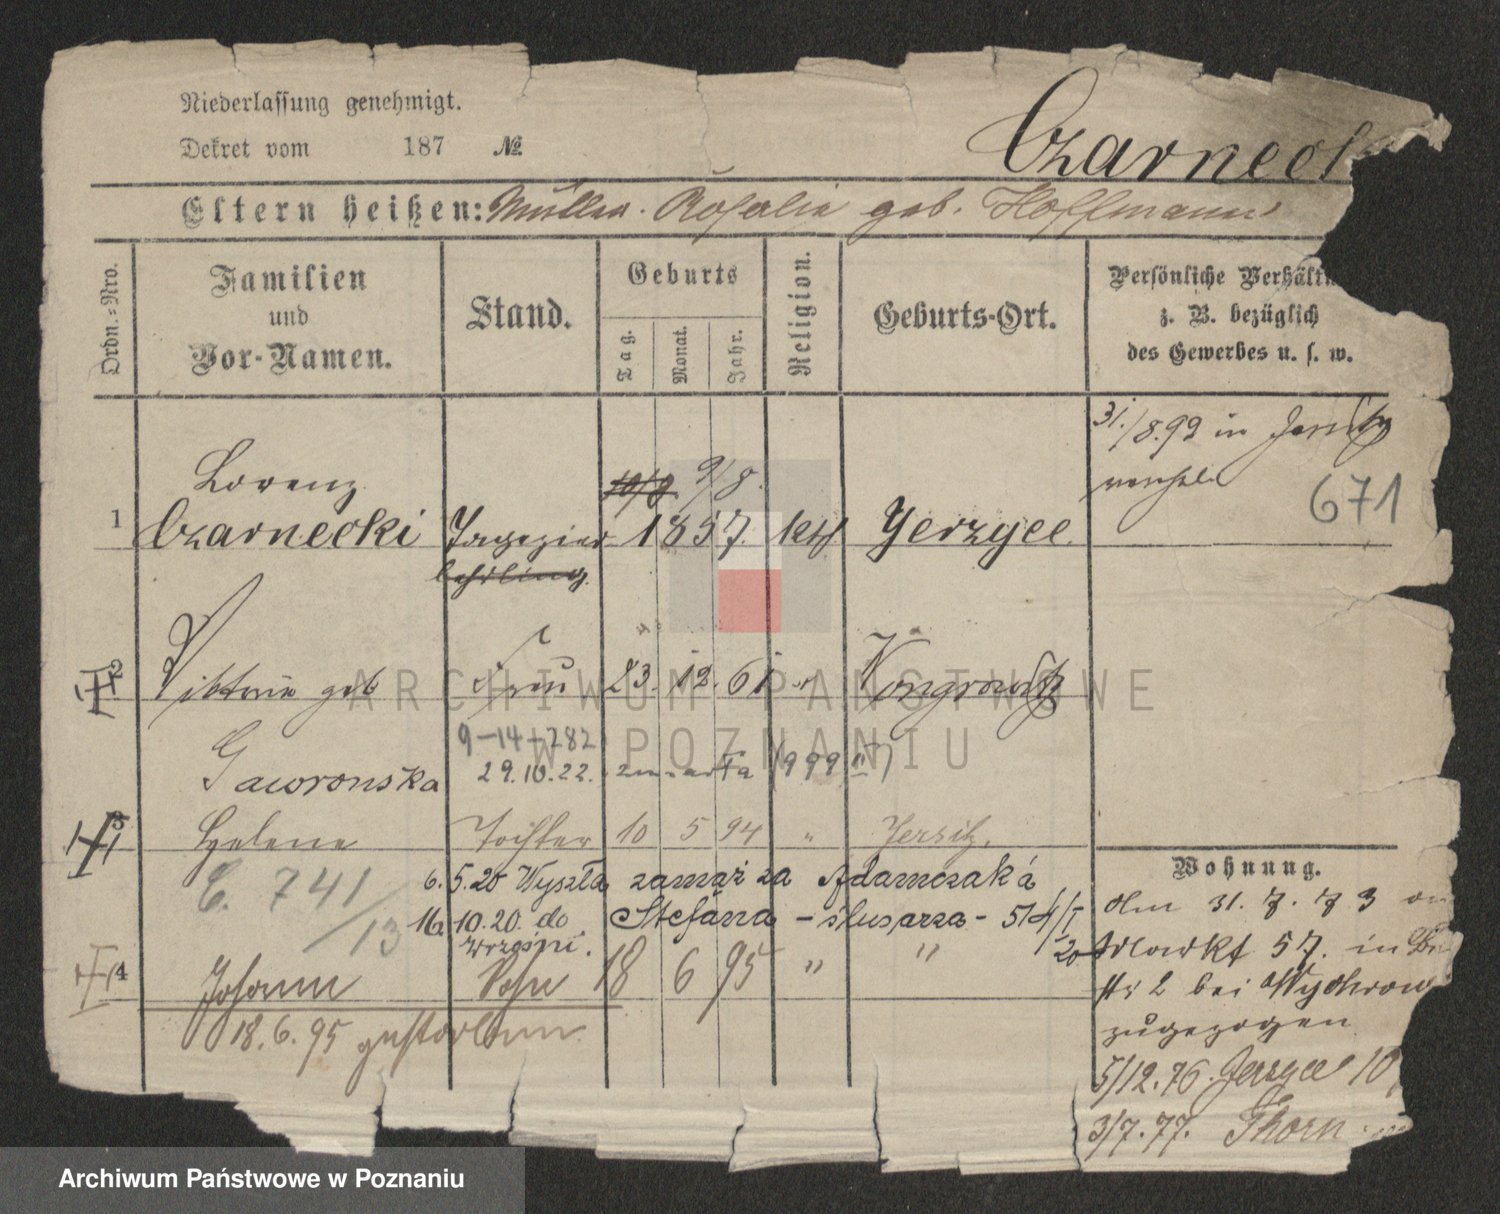 Niederlassung genehmigt.
Dekret vom 187 No.
Czarneck
Eltern heißen: Müller. Rosalie geb. Hoffmann
Ordn.-Nro.
Familien und Vor-Namen.
Stand.
Geburts
Tag. Monat. Jahr.
Religion.
Geburts-Ort.
Persönliche Verhält
z. B. bezüglich
des Gewerbes u. s. w.
31./8.92 in Jersitz
671
Lorenz 10/8 9/8.
1 Czarnecki Tapezier 1857. kth Yerzyce.
lehrling
2 Viktoria geb Frau 23. 12. 61 " Wongrowitz
Gaworonska
9-14-282
29.10.22. zmarła (999/II)
3 Helene Tochter 10 5 94 " Jersitz.
C. 741/13
6. 5.20 Wyszła zamąż za Adamczaka
16. 10.20. do Stefana - ślusarza - 514/I
Wrześni. 20
4 Johann Sohn 18 6 95 " "
18.6.95 gestorben
Wohnung.
Am 31. 7. 73 on
Markt 57. in
str 2 bei Wychrow
zugezogen
5/12.76. Jerzyce 10
3/7.77. Thorn
ARCHIWUM PAŃSTWOWE
W POZNANIU
Archiwum Państwowe w Poznaniu